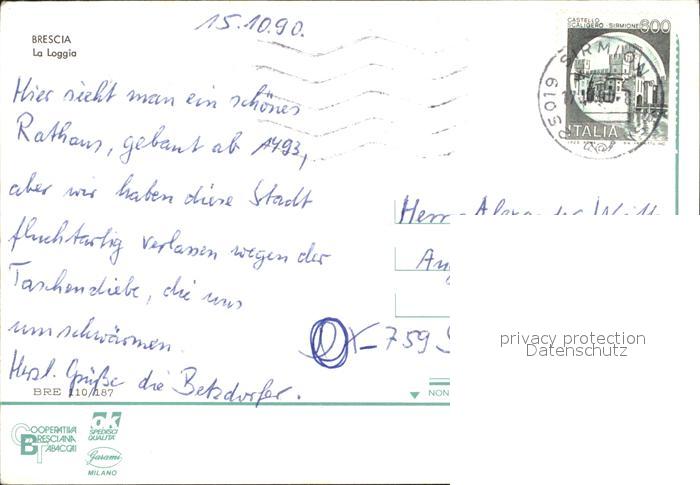 15.10.90.
BRESCIA
La Loggia
Hier sieht man ein schönes
Rathaus, gebaut ab 1493,
aber wir haben diese Stadt
fluchtartig verlassen wegen der
Taschendiebe, die uns
umschwärmen.
Herzl. Grüße die Betzdorfer.
BRE 110/187
COOPERATIVA
BRESCIANA
TABACCAI
ak
SPEDISCI
QUALITÀ
Garami
MILANO
CASTELLO
SCALIGERO - SIRMIONE 600
ITALIA
SIRMIONE
25019
Herrn Alexander
D-759
NON
privacy protection
Datenschutz